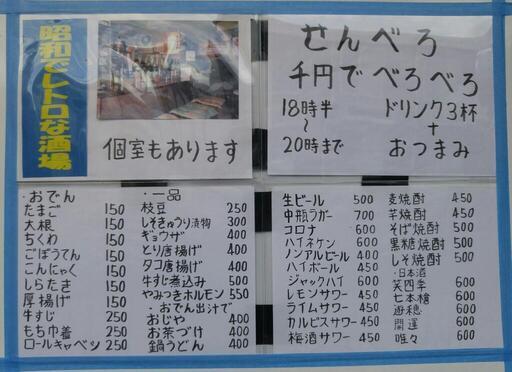 昭和でレトロな酒場
個室もあります
せんべろ
千円でべろべろ
18時半 ドリンク3杯
〜 +
20時まで おつまみ
・おでん
たまご 150
大根 150
ちくわ 150
ごぼうてん 150
こんにゃく 150
しらたき 150
厚揚げ 150
牛すじ 250
もち巾着 250
ロールキャベツ 250
・一品
枝豆 250
しそきゅうり漬物 300
ギョウザ 400
とり唐揚げ 400
タコ唐揚げ 400
牛すじ煮込み 500
やみつきホルモン 550
・おでん出汁で
おじや 400
お茶づけ 400
鍋うどん 400
生ビール 500
中瓶ラガー 700
コロナ 600
ハイネケン 600
ノンアルビール 400
ハイボール 450
ジャックハイ 600
レモンサワー 450
ライムサワー 450
カルピスサワー 450
梅酒サワー 450
麦焼酎 450
芋焼酎 450
そば焼酎 500
黒糖焼酎 500
しそ焼酎 500
・日本酒
笑四季 600
七本槍 600
遊穂 600
開運 600
唯々 600